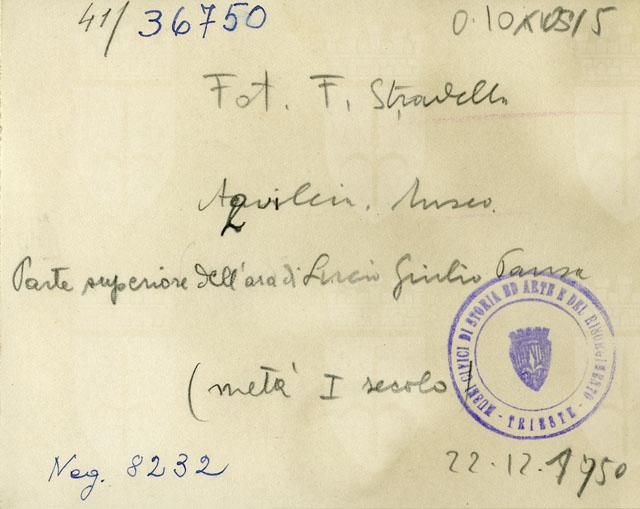 41/36750
Fot. F. Stradella
Aquileia. Museo.
Parte superiore dell'ara di Lucio Giulio Pansa
(metà I secolo)
MUSEI CIVICI DI STORIA ED ARTE E DEL RISORGIMENTO - TRIESTE -
Neg. 8232
22.12.1950